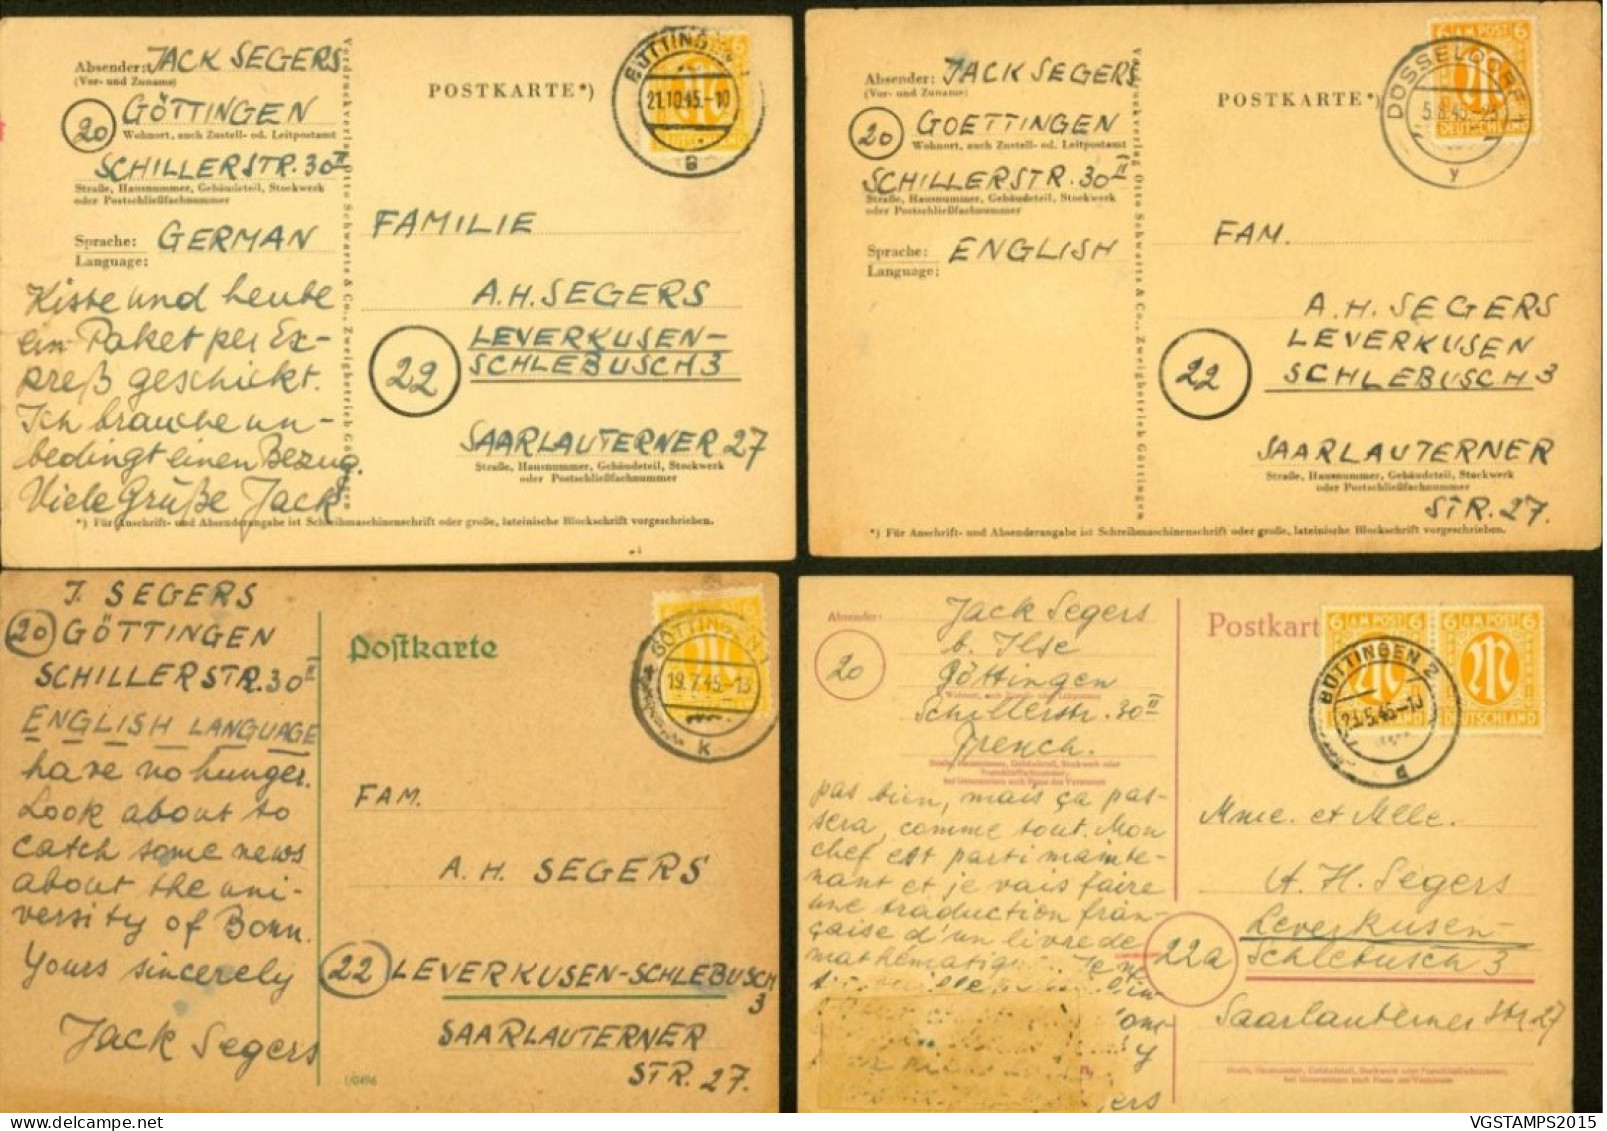 Absender: JACK SEGERS
(Vor- und Zuname)
20 GÖTTINGEN
Wohnort, auch Zustell- od. Leitpostamt
SCHILLERSTR. 30 II
Straße, Hausnummer, Gebäudeteil, Stockwerk
oder Postschließfachnummer
Sprache: GERMAN
Language:
Kiste und heute
ein Paket per Ex-
preß geschickt.
Ich brauche un-
bedingt einen Bezug.
Viele Grüße Jack
Vordruckverlag Otto Schwartz & Co., Zweigbetrieb Göttingen
POSTKARTE*)
21.10.45.-10
a
6 AM POST 6
FAMILIE
A. H. SEGERS
LEVERKUSEN-
22 SCHLEBUSCH 3
SAARLAUTERNER 27
Straße, Hausnummer, Gebäudeteil, Stockwerk
oder Postschließfachnummer
*) Für Anschrift- und Absenderangabe ist Schreibmaschinenschrift oder große, lateinische Blockschrift vorgeschrieben.
Absender: JACK SEGERS
(Vor- und Zuname)
20 GOETTINGEN
Wohnort, auch Zustell- od. Leitpostamt
SCHILLERSTR. 30 II
Straße, Hausnummer, Gebäudeteil, Stockwerk
oder Postschließfachnummer
Sprache: ENGLISH
Language:
Vordruckverlag Otto Schwartz & Co., Zweigbetrieb Göttingen
POSTKARTE*)
6 AM POST 6
DEUTSCHLAND
DÜSSELDORF 1
y
FAM.
A. H. SEGERS
LEVERKUSEN
22 SCHLEBUSCH 3
SAARLAUTERNER
Straße, Hausnummer, Gebäudeteil, Stockwerk
oder Postschließfachnummer
STR. 27.
*) Für Anschrift- und Absenderangabe ist Schreibmaschinenschrift oder große, lateinische Blockschrift vorgeschrieben.
J. SEGERS
20 GÖTTINGEN
SCHILLERSTR. 30 II
ENGLISH LANGUAGE
have no hunger.
Look about to
catch some news
about the uni-
versity of Bonn.
Yours sincerely
Jack Segers
Postkarte
GÖTTINGEN 1
19.7.45.-13
k
FAM.
A. H. SEGERS
22 LEVERKUSEN-SCHLEBUSCH
3
SAARLAUTERNER
STR. 27.
Absender: Jack Segers
20 b. Ilse
Göttingen
Wohnort, auch Zustell- oder Leitpostamt
Schillerstr. 30 II
French.
Straße, Hausnummer, Gebäudeteil, Stockwerk oder
Postschließfachnummer;
bei Untermietern auch Name des Vermieters
pas bien, mais ça pas-
sera, comme tout. Mon
chef est parti mainte-
nant et je vais faire
une traduction fran-
çaise d'un livre de
Postkart
6 AM POST 6
6 AM POST 6
DEUTSCHLAND
23.5.46.-10
d
Mme. et Mlle.
A. H. Segers
Leverkusen-
22a Schlebusch 3
Saarlauterner Str 27
Straße, Hausnummer, Gebäudeteil, Stockwerk oder Postschließfachnummer;
bei Untermietern auch Name des Vermieters
VGSTAMPS2015